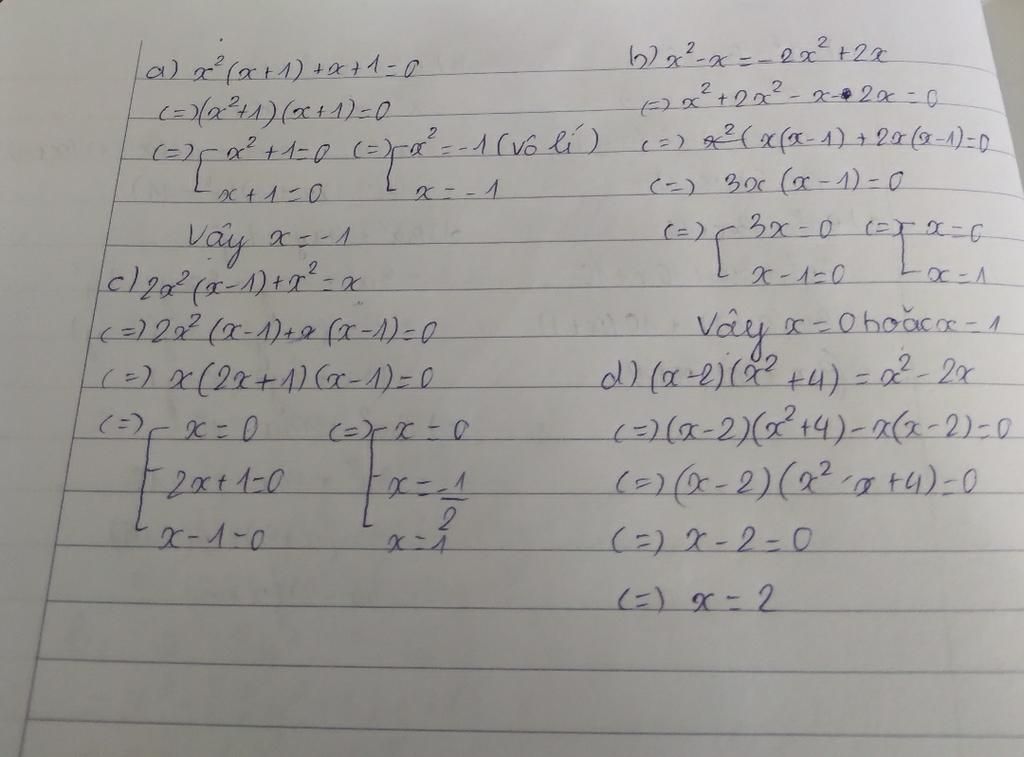 a) x²(x+1)+x+1=0
(=)(x²+1)(x+1)=0
(=)[x²+1=0 (=)[x²=-1(vô lí)
x+1=0 x=-1
Vây x=-1
c) 2x²(x-1)+x²=x
(=)2x²(x-1)+x(x-1)=0
(=) x(2x+1)(x-1)=0
(=)[x=0 (=)[x=0
2x+1=0 x=-1/2
x-1=0 x=1
b) x²-x=-2x²+2x
(=) x²+2x²-x-2x=0
(=) x(x-1)+2x(x-1)=0
(=) 3x(x-1)=0
(=)[3x=0 (=)[x=0
x-1=0 x=1
Vây x=0 hoăc x=1
d) (x-2)(x²+4)=x²-2x
(=)(x-2)(x²+4)-x(x-2)=0
(=)(x-2)(x²-x+4)=0
(=) x-2=0
(=) x=2